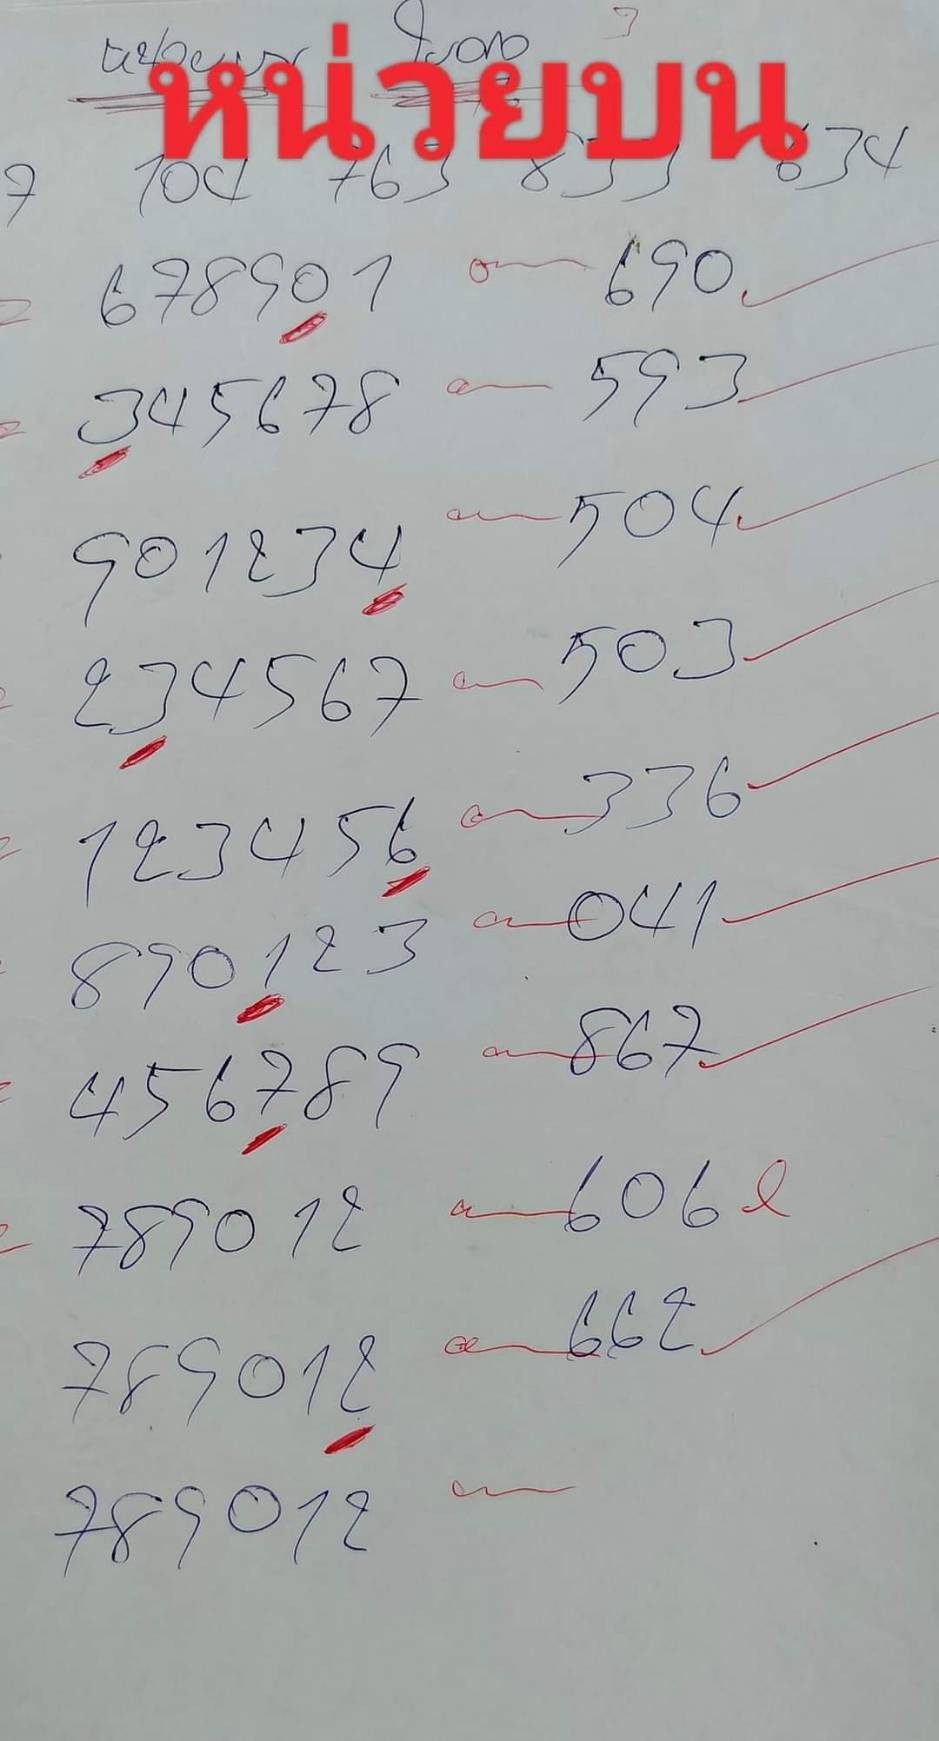 หน่วยบน
7 104 763 833 634
678901 690
345678 593
901234 504
234567 503
123456 336
890123 041
456789 867
789012 606
789012 662
789012